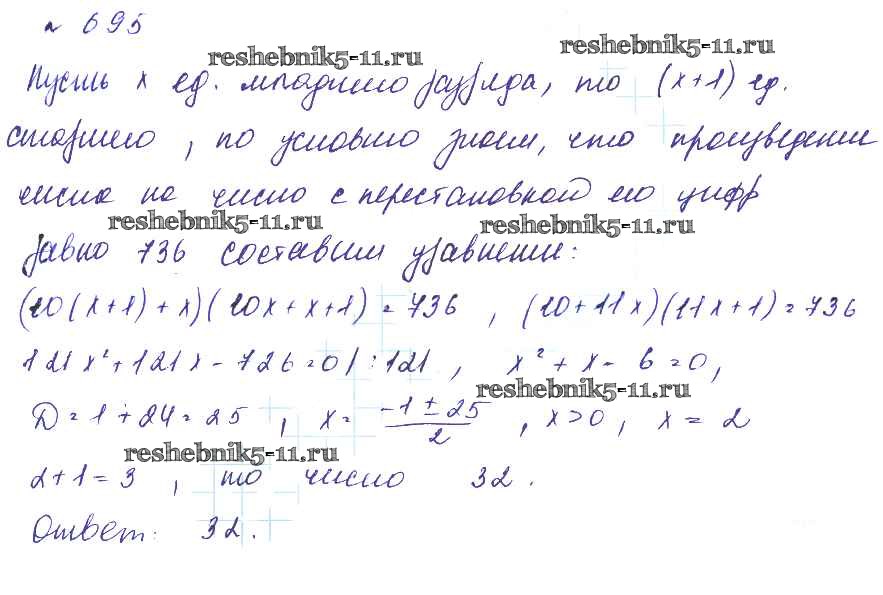 № 695
reshebnik5-11.ru
reshebnik5-11.ru
Пусть x ед. младшего разряда, то (x+1) ед.
старшего, по условию знаем, что произведение
числа на число с перестановкой его цифр
reshebnik5-11.ru
reshebnik5-11.ru
равно 736 составим уравнение:
(10(x+1)+x)(10x+x+1)=736, (10+11x)(11x+1)=736
121x²+121x-726=0/:121, x²+x-6=0,
reshebnik5-11.ru
D=1+24=25, x=\frac{-1±25}{2}, x>0, x=2
reshebnik5-11.ru
2+1=3, то число 32.
Ответ: 32.